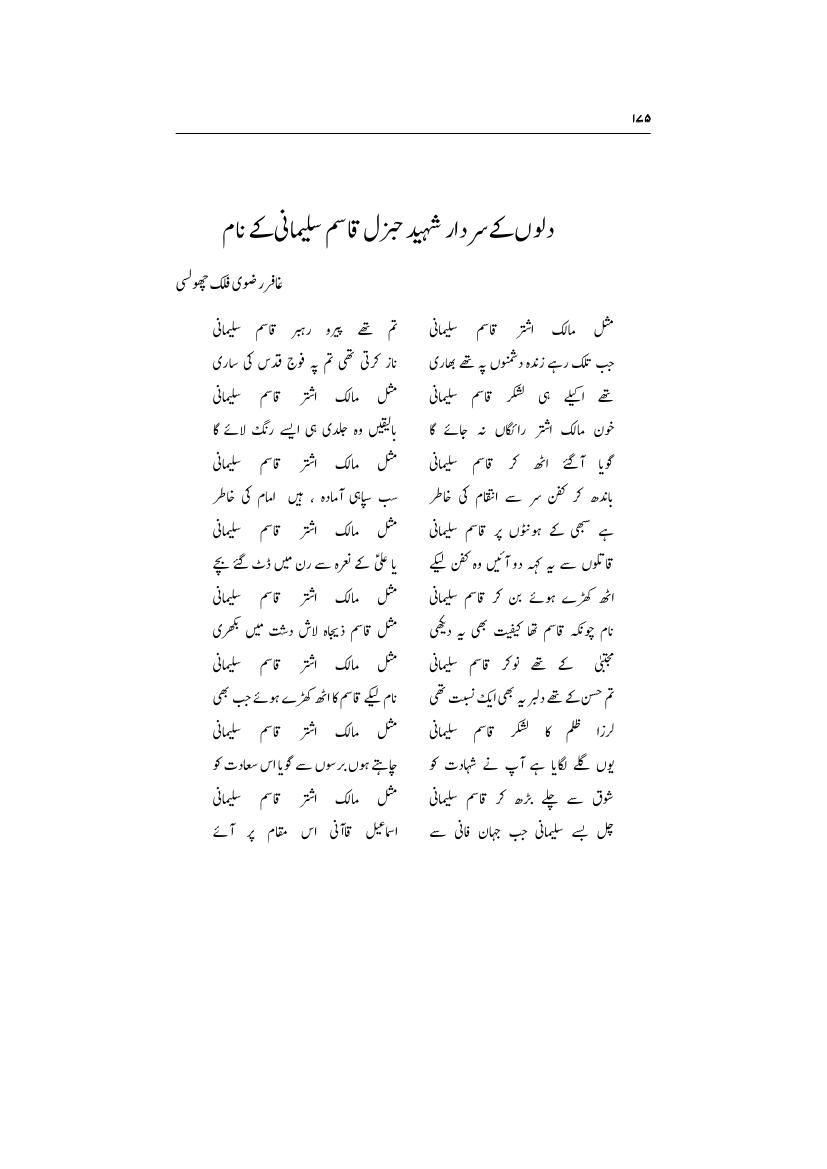 ۱۷۵
دلوں کے سردار شہید جنرل قاسم سلیمانی کے نام
غافر رضوی فلک چھولسی
مثل مالک اشتر قاسم سلیمانی تم تھے پیرو رہبر قاسم سلیمانی
جب تلک رہے زندہ دشمنوں پہ تھے بھاری ناز کرتی تھی تم پہ فوج قدس کی ساری
تھے اکیلے ہی لشکر قاسم سلیمانی مثل مالک اشتر قاسم سلیمانی
خون مالک اشتر رائگاں نہ جائے گا بالیقیں وہ جلدی ہی ایسے رنگ لائے گا
گویا آگئے اٹھ کر قاسم سلیمانی مثل مالک اشتر قاسم سلیمانی
باندھ کر کفن سر سے انتقام کی خاطر سب سپاہی آمادہ ، ہیں امام کی خاطر
ہے سبھی کے ہونٹوں پر قاسم سلیمانی مثل مالک اشتر قاسم سلیمانی
قاتلوں سے یہ کہہ دو آئیں وہ کفن لیکے یا علیؑ کے نعرہ سے رن میں ڈٹ گئے بچے
اٹھ کھڑے ہوئے بن کر قاسم سلیمانی مثل مالک اشتر قاسم سلیمانی
نام چونکہ قاسم تھا کیفیت بھی یہ دیکھی مثل قاسم ذیجاہ لاش دشت میں بکھری
مجتبیٰ کے تھے نوکر قاسم سلیمانی مثل مالک اشتر قاسم سلیمانی
تم حسن کے تھے دلبر یہ بھی ایک نسبت تھی نام لیکے قاسم کا اٹھ کھڑے ہوئے جب بھی
لرزا ظلم کا لشکر قاسم سلیمانی مثل مالک اشتر قاسم سلیمانی
یوں گلے لگایا ہے آپ نے شہادت کو چاہتے ہوں برسوں سے گویا اس سعادت کو
شوق سے چلے بڑھ کر قاسم سلیمانی مثل مالک اشتر قاسم سلیمانی
چل بسے سلیمانی جب جہان فانی سے اسماعیل قاآنی اس مقام پر آئے